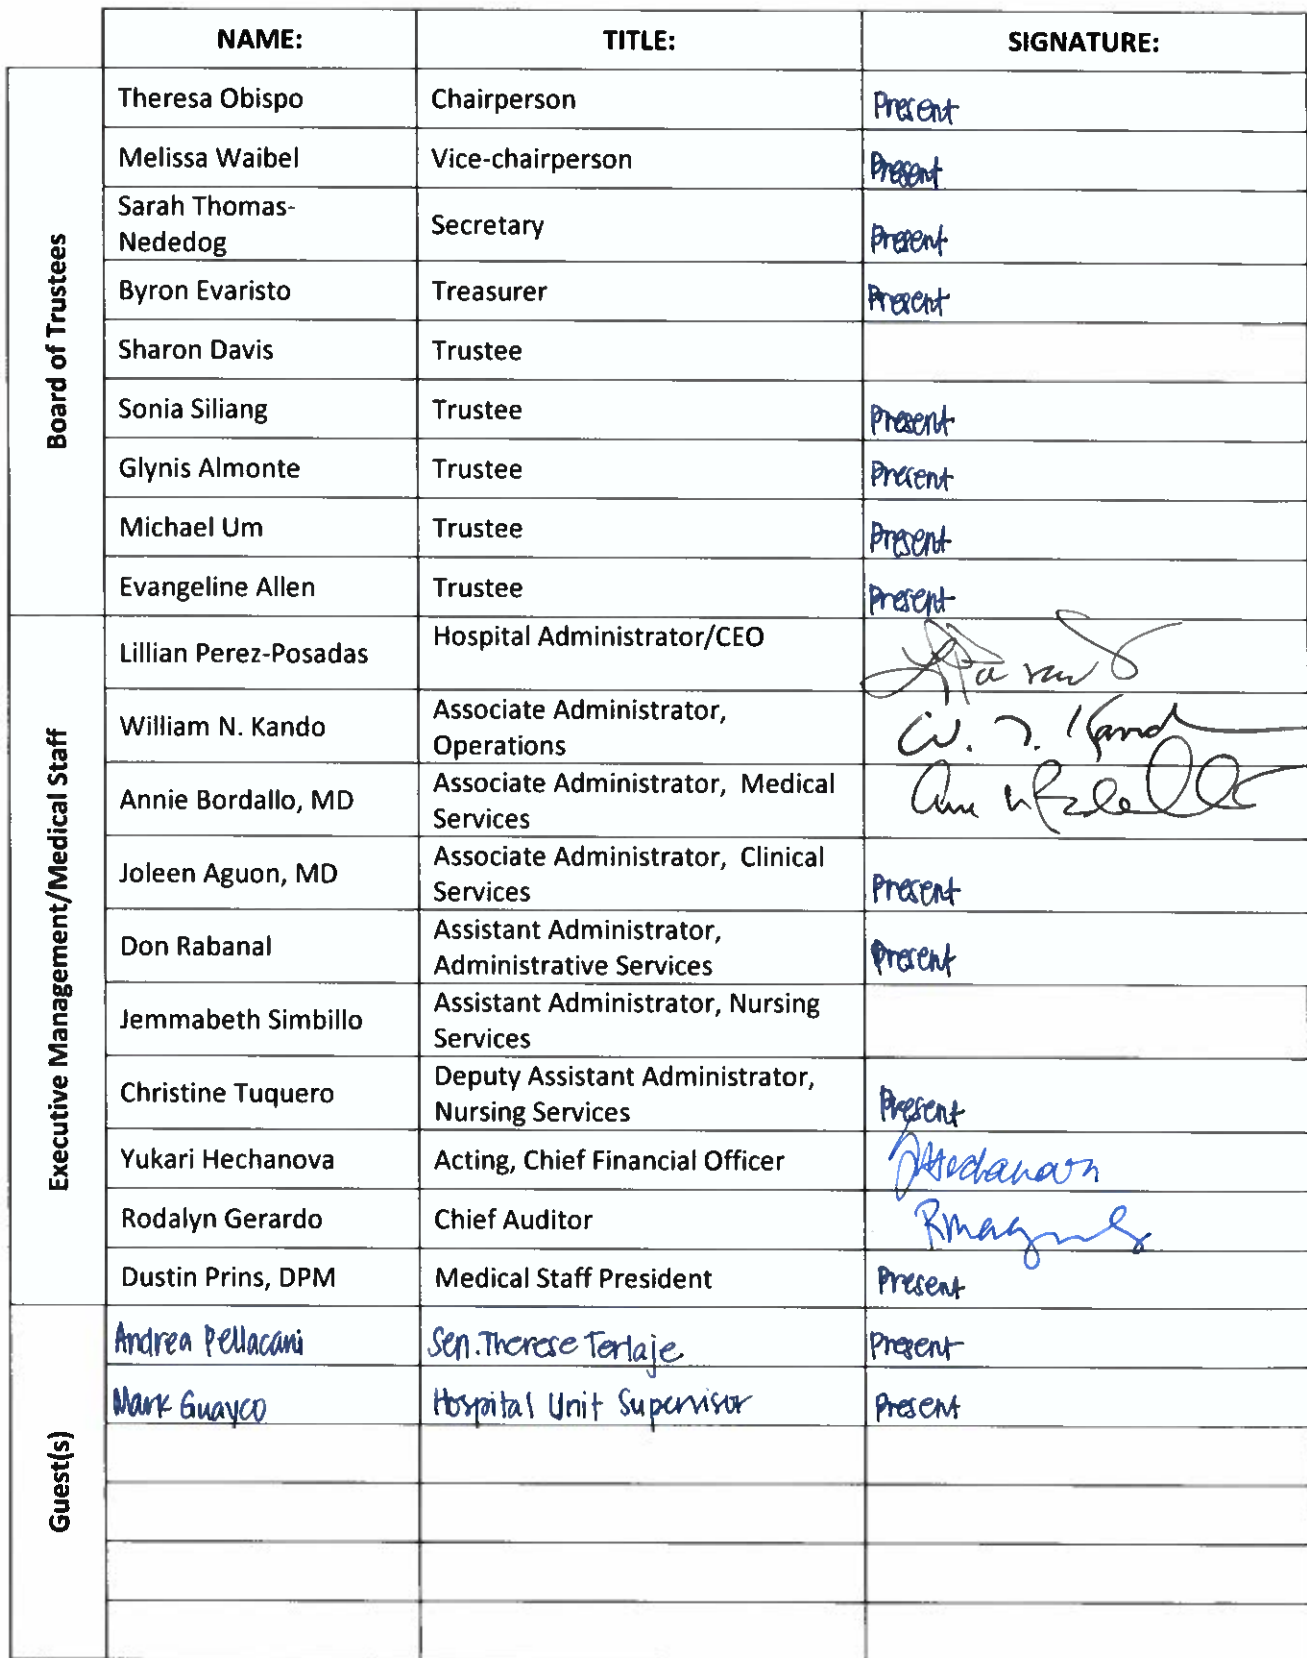 NAME: TITLE: SIGNATURE:
Board of Trustees
Theresa Obispo Chairperson Present
Melissa Waibel Vice-chairperson Present
Sarah Thomas-
Nededog Secretary Present
Byron Evaristo Treasurer Present
Sharon Davis Trustee
Sonia Siliang Trustee Present
Glynis Almonte Trustee Present
Michael Um Trustee Present
Evangeline Allen Trustee Present
Executive Management/Medical Staff
Lillian Perez-Posadas Hospital Administrator/CEO
William N. Kando Associate Administrator,
Operations W. N. Kand
Annie Bordallo, MD Associate Administrator, Medical
Services
Joleen Aguon, MD Associate Administrator, Clinical
Services Present
Don Rabanal Assistant Administrator,
Administrative Services Present
Jemmabeth Simbillo Assistant Administrator, Nursing
Services
Christine Tuquero Deputy Assistant Administrator,
Nursing Services Present
Yukari Hechanova Acting, Chief Financial Officer
Rodalyn Gerardo Chief Auditor
Dustin Prins, DPM Medical Staff President Present
Guest(s)
Andrea Pellacani Sen. Therese Terlaje Present
Mark Guayco Hospital Unit Supervisor Present